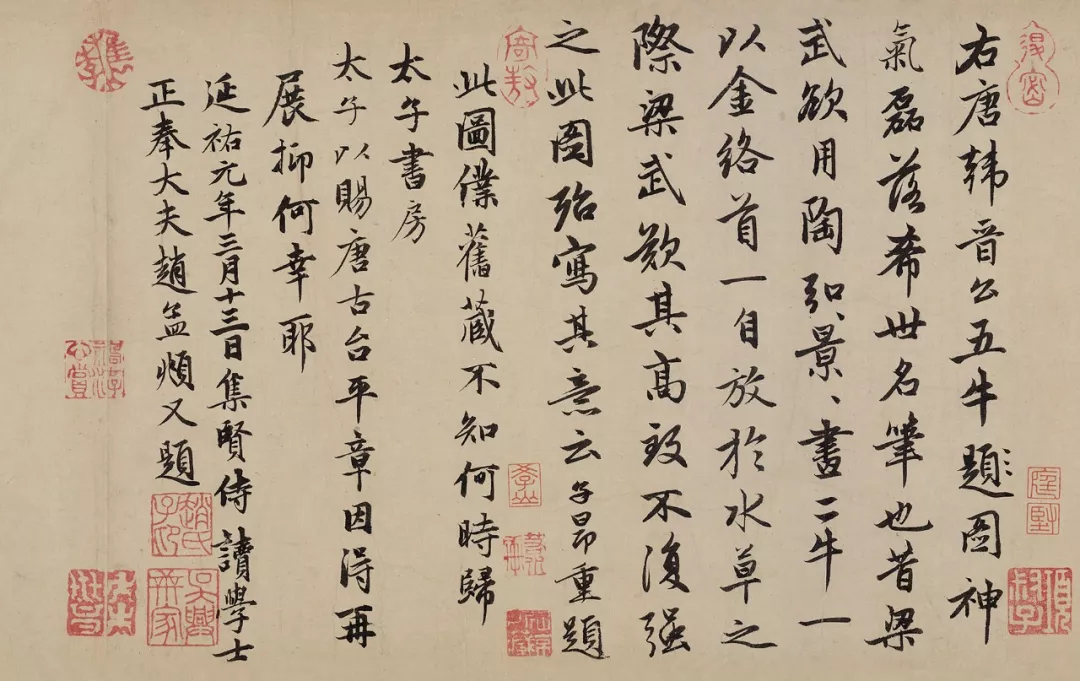 右唐韓晉公五牛題圖神
氣磊落希世名筆也昔梁
武欲用陶弘景、畫二牛一
以金絡首一自放於水草之
際梁武歎其高致不復强
之此圖殆寫其意云子昂重題
此圖僕舊藏不知何時歸
太子書房
太子以賜唐古台平章因得再
展抑何幸耶
延祐元年三月十三日集賢侍讀學士
正奉大夫趙孟頫又題